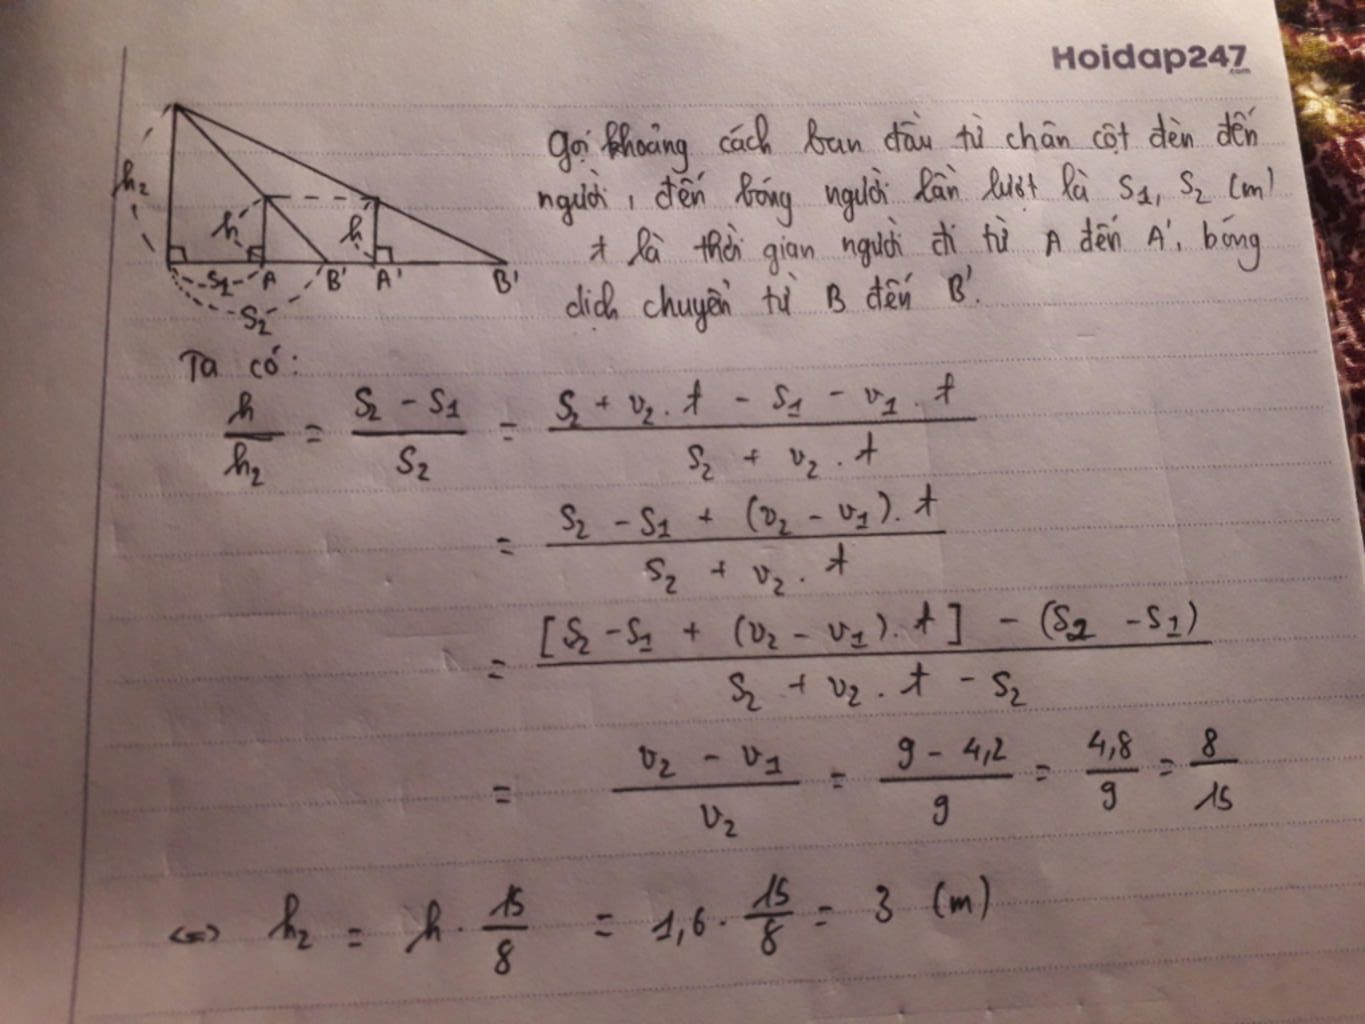 Hoidap247
.com
h₂
h
h
S₁
A
B'
A'
B'
S₂
Gọi khoảng cách ban đầu từ chân cột đèn đến
người, đến bóng người lần lượt là S₁, S₂ (m)
t là thời gian người đi từ A đến A', bóng
dịch chuyển từ B đến B'.
Ta có:
h/h₂ = (S₂ - S₁)/S₂ = (S₂ + v₂.t - S₁ - v₁.t)/(S₂ + v₂.t)
= (S₂ - S₁ + (v₂ - v₁).t)/(S₂ + v₂.t)
= ([S₂ - S₁ + (v₂ - v₁).t] - (S₂ - S₁))/(S₂ + v₂.t - S₂)
= (v₂ - v₁)/v₂ = (9 - 4,2)/9 = 4,8/9 = 8/15
<=> h₂ = h.15/8 = 1,6.15/8 = 3 (m)